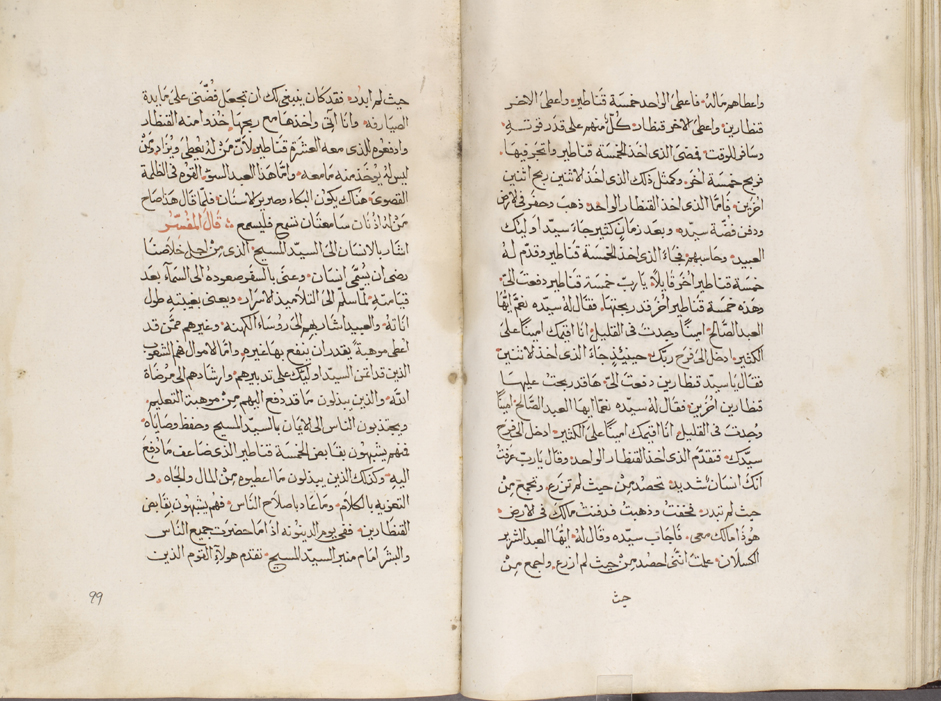 واعطاهم ماله فاعطى الواحد خمسة قناطير واعطى الاخر
قنطارين واعطى الاخر قنطار كل منهم على قدر قوته
وسافر للوقت فمضى الذى اخذ الخمسة قناطير واتجر فيها
فربح خمسة اخر وكمثل ذلك الذى اخذ الاثنين ربح اثنين
اخرين فاما الذى اخذ القنطار الواحد ذهب وحفر فى الارض
ودفن فضة سيده وبعد زمان كثير جاء سيد اوليك
العبيد وحاسبهم فجاء الذى اخذ الخمسة قناطير وقدم له
خمسة قناطير اخر قايلا يا رب خمسة قناطير دفعت الى
وهذه خمسة قناطير اخر قد ربحتها فقال له سيده نعم ايها
العبد الصالح امينا وجدت فى القليل انا اقيمك امينا على
الكثير ادخل الى فرح ربك حينيذ جاء الذى اخذ الاثنين
فقال يا سيد قنطارين دفعت الى ها قد ربحت عليهما
قنطارين اخرين فقال له سيده نعم ايها العبد الصالح امينا
وجدت فى القليل انا اقيمك امينا على الكثير ادخل الى فرح
سيدك فتقدم الذى اخذ القنطار الواحد وقال يا رب عرفت
انك انسان شديد تحصد من حيث لم تزرع وتجمع من
حيث لم تبدر فخفت وذهبت فدفنت مالك فى الارض
هوذا مالك معى فاجاب سيده وقال له ايها العبد الشرير
الكسلان علمت اننى احصد من حيث لم ازرع واجمع من
حيث
حيث لم ابدر فقد كان ينبغى لك ان تجعل فضتى على مايدة
الصيارفه وانا آتى واخذها مع ربحها خذوا منه القنطار
وادفعوه للذى معه العشرة قناطير لان من له يعطى ويزاد ومن
ليس له يوخذ منه ما معه واما هذا العبد السو القوه فى الظلمة
القصوى هناك يكون البكاء وصرير الاسنان فلما قال هذا صاح
من له اذنان سامعتان تسمع فليسمع قال المفسر
اشار بالانسان الى السيد المسيح الذى من اجل خلاصنا
رضى ان يسمى انسان وعنى بالسفر صعوده الى السماء بعد
قيامته لما سلم الى التلاميذ الاسرار ويعنى بغيبته طول
اناته والعبيد اشار بهم الى روساء الكهنه وغيرهم ممن قد
اعطى موهبة يقدر ان ينفع بها غيره واما الاموال فهم الشعوب
الذين قد ايتمن السيد اوليك على تدبيرهم وارشادهم الى مرضاة
الله والذين يبذلون ما قد دفع اليهم من موهبة التعليم
ويجتذبون الناس الى الايمان بالسيد المسيح وحفظ وصاياه
فهم يشبهون بقابض الخمسة قناطير الذى ضاعف ما دفع
اليه وكذلك الذين يبذلون ما اعطيوه من المال والجاه و
التعزيه بالكلام وما عاد باصلاح الناس فهم يشبهون بقابض
القنطارين ففى يوم الدينونه اذا ما حضرت جميع الناس
والبشر امام منبر السيد المسيح تقدم هولاء القوم الذين
99